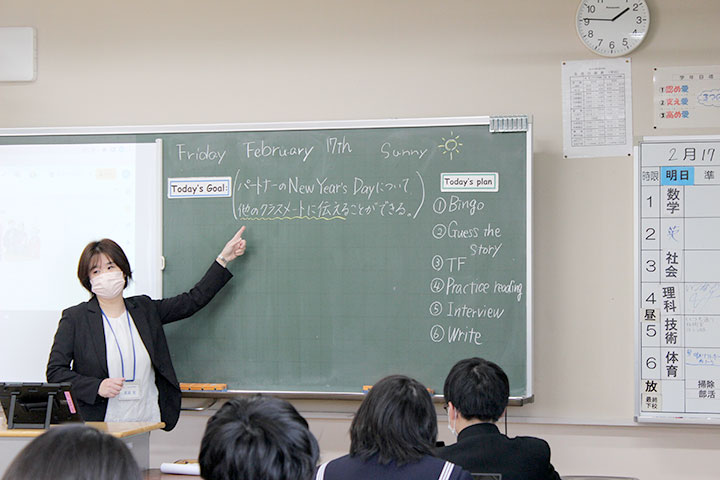 Friday February 17th Sunny
Today's Goal:
パートナーのNew Year's Dayについて
他のクラスメートに伝えることができる。
Today's plan
①Bingo
②Guess the
story
③TF
④Practice reading
⑤Interview
⑥Write
12
1
2
3
4
5
6
7
8
9
10
11
2月17
時限 明日 準
1 数学
2
3 社会
4 理科
昼
5 技術
6 体育
放 掃除
最終下校 部活